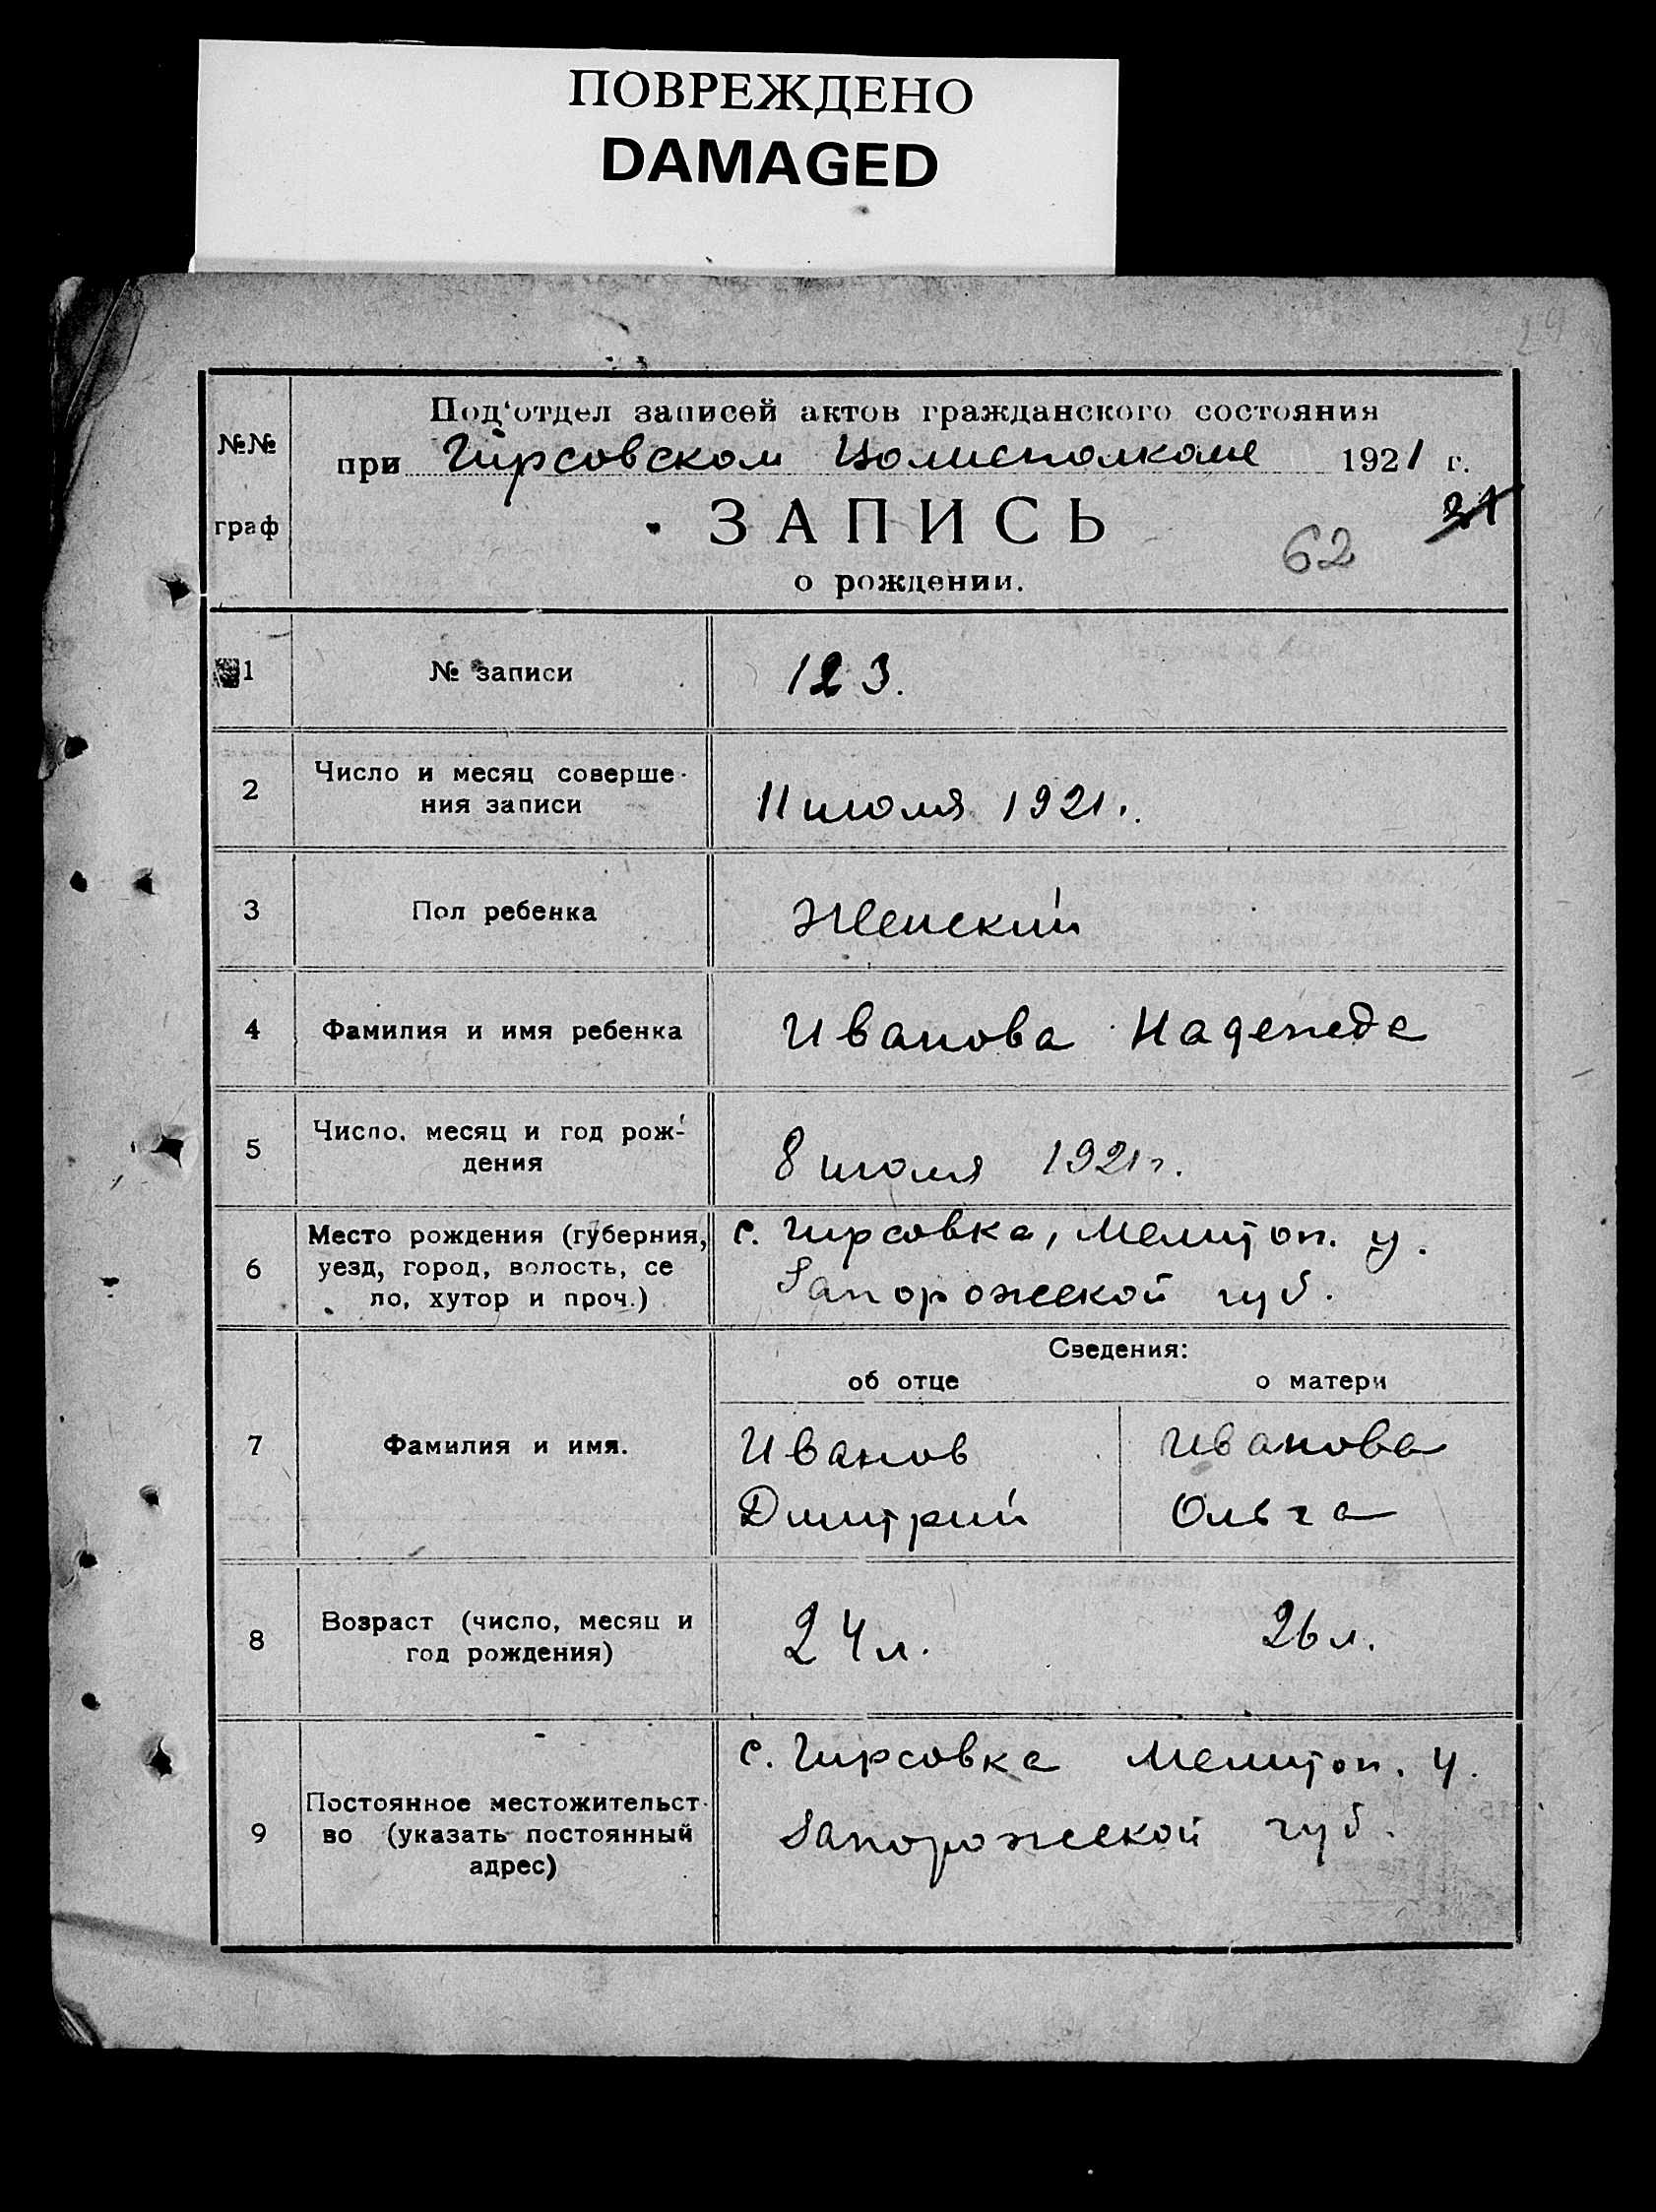 ПОВРЕЖДЕНО
DAMAGED
29
№№
граф
Под‘отдел записей актов гражданского состояния
при Гирсовском Волисполкоме 1921 г.
31
ЗАПИСЬ
62
о рождении.
1
№ записи
123.
2
Число и месяц соверше-
ния записи
11 июля 1921.
3
Пол ребенка
Женский
4
Фамилия и имя ребенка
Иванова Надежда
5
Число, месяц и год рож-
дения
8 июля 1921 г.
6
Место рождения (губерния,
уезд, город, волость, се
ло, хутор и проч.)
с. Гирсовка, Мелитоп. у.
Запорожской губ.
Сведения:
об отце
о матери
7
Фамилия и имя.
Иванов
Дмитрий
Иванова
Ольга
8
Возраст (число, месяц и
год рождения)
24 л.
26 л.
9
Постоянное местожительст-
во (указать постоянный
адрес)
с. Гирсовка Мелитоп. у.
Запорожской губ.